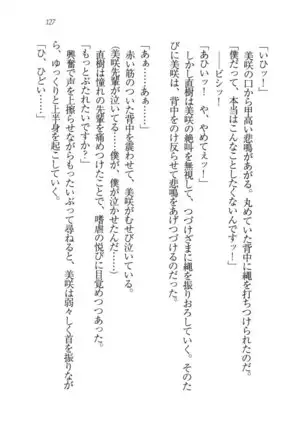 127
「いひッ！」
美咲の口から甲高い悲鳴があがる。丸めていた背中に縄を打ちつけられたのだ。
「僕だって、本当はこんなことしたくないんですッ！」
――ビシッ！
「あひぃッ！　や、やめてぇッ！」
しかし直樹は美咲の絶叫を無視して、つづけざまに縄を振りおろしていく。そのた
びに美咲は、背中をのけ反らせて悲鳴をあげつづけるのだった。
「あぁ……あぁ……」
赤い筋のついた背中を震わせて、美咲がむせび泣いていた。
（美咲先輩が泣いてる……僕が、僕が泣かせたんだ……）
直樹は憧れの先輩を痛めつけたことで、嗜虐の悦びに目覚めつつあった。
「もっとぶたれたいですか？」
興奮で声を上擦らせながらもいたぶって尋ねると、美咲は弱々しく首を振りなが
ら、ゆっくりと上半身を起こしていく。
「ひ、ひどい……」